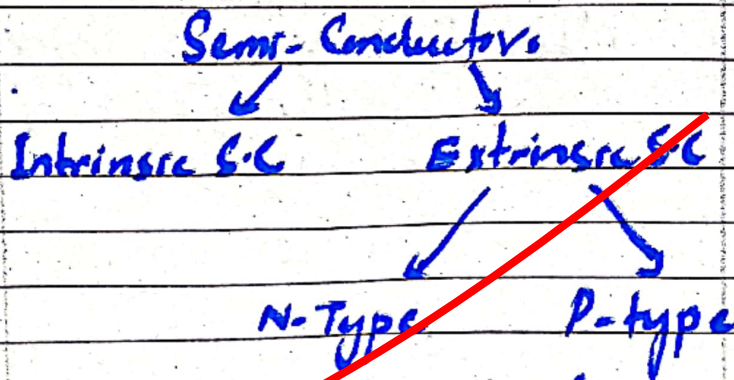 Semi-Conductors
Intrinsic S.C Extrinsic S.C
N-Type P-type